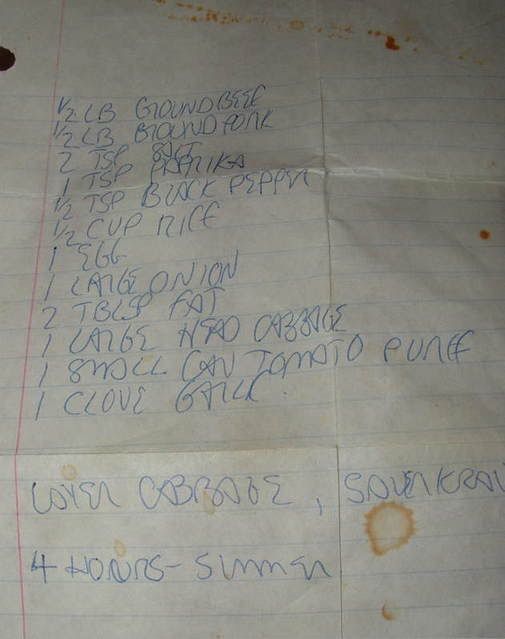 1/2 LB GROUND BEEF
1/2 LB GROUND PORK
2 TSP SALT
1 TSP PAPRIKA
1/2 TSP BLACK PEPPER
1/2 CUP RICE
1 EGG
1 LARGE ONION
2 TBLSP FAT
1 LARGE HEAD CABBAGE
1 SMALL CAN TOMATO PUREE
1 CLOVE GARLIC
LAYER CABBAGE, SAUERKRAU
4 HOURS - SIMMER